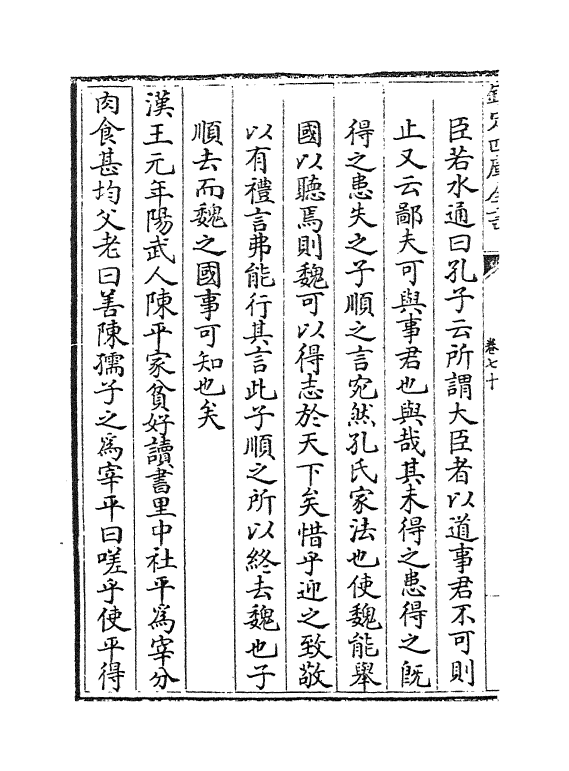 欽定四庫全書
卷七十
臣若水通曰孔子云所謂大臣者以道事君不可則
止又云鄙夫可與事君也與哉其未得之患得之既
得之患失之子順之言宛然孔氏家法也使魏能舉
國以聽焉則魏可以得志於天下矣惜乎迎之致敬
以有禮言弗能行其言此子順之所以終去魏也子
順去而魏之國事可知也矣
漢王元年陽武人陳平家貧好讀書里中社平為宰分
肉食甚均父老曰善陳孺子之為宰平曰嗟乎使平得